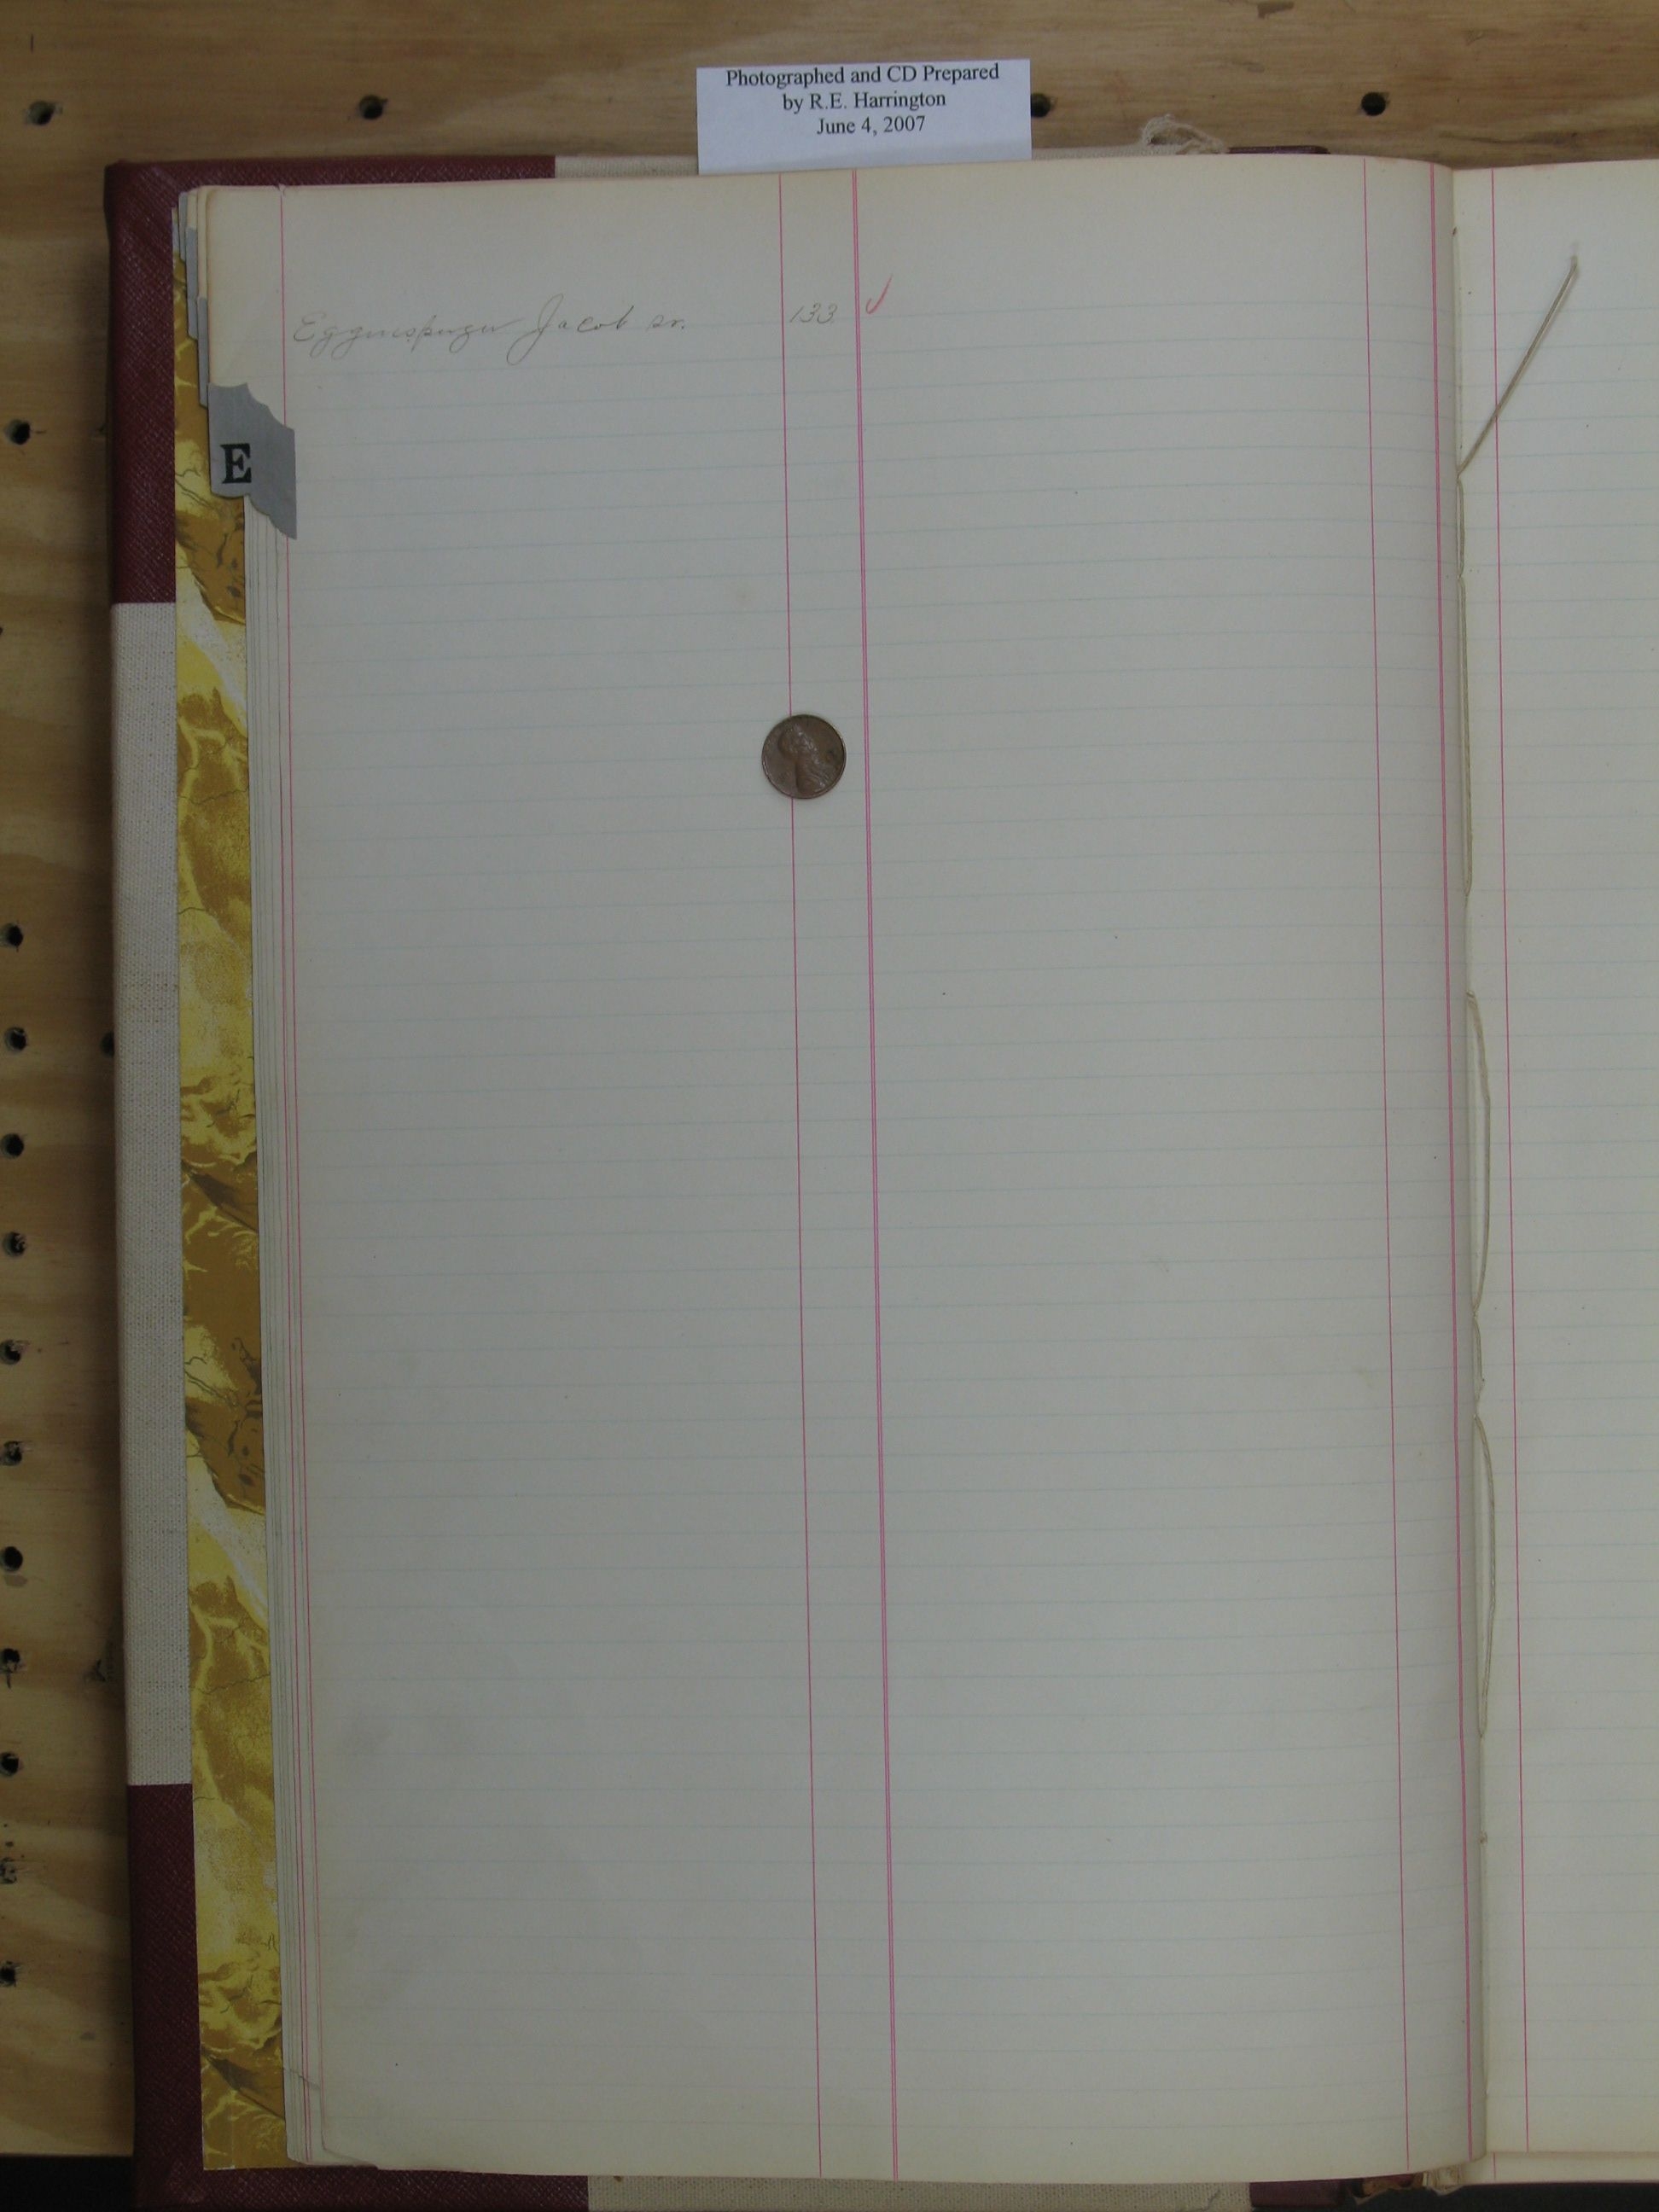 Photographed and CD Prepared
by R.E. Harrington
June 4, 2007
Jacob sr. 133 ✓
E